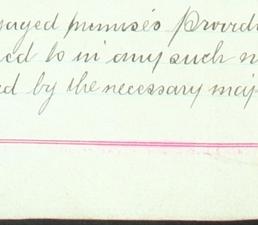 gaged premises provid
ed to in any such m
ed by the necessary maj